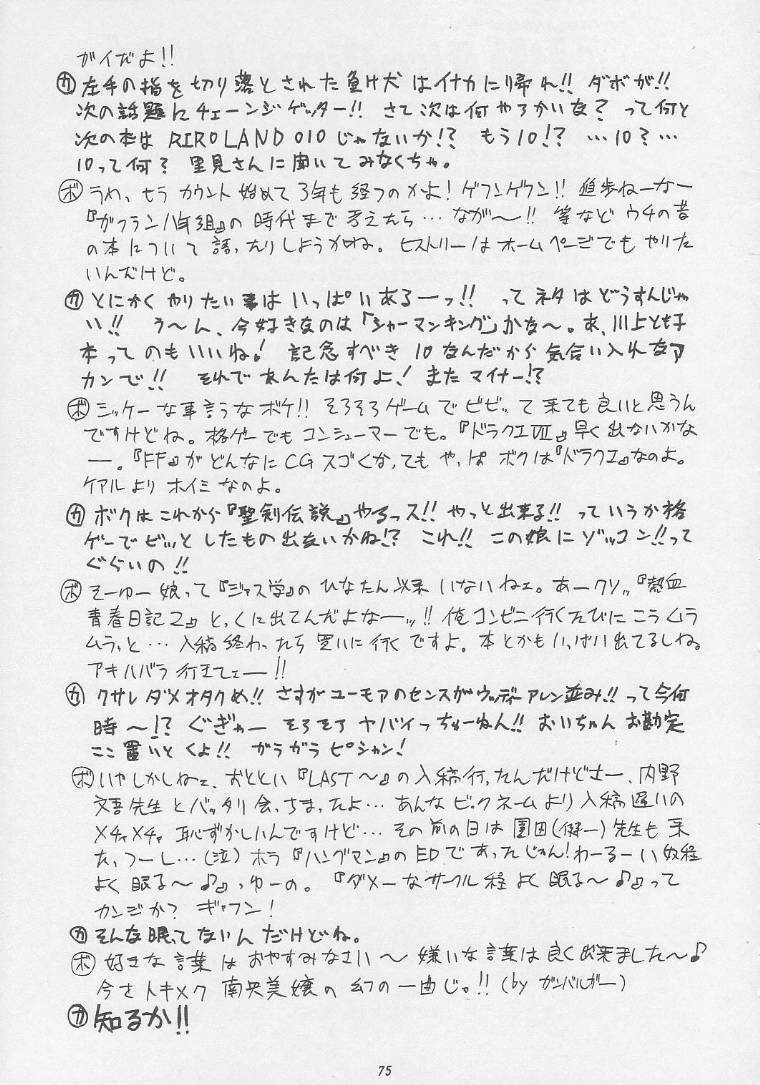 ガイだよ!!
㋕左手の指を切り落とされた負け犬はイナカに帰れ!! ダボが!!
次の話題にチェーンジゲッター!! さて次は何やろかいな? って何と
次の本はRIROLAND 010じゃないか!? もう10!? …10? …
10って何? 里見さんに聞いてみなくちゃ。
ボ うわ、もうカウント始めて3年も経つのかよ! ゲフンゲフン!! 進歩ねーなー
『ガクラン八年組』の時代まで考えたら…なが〜!! 等などウチの昔
の本について語ったりしようかね。ヒストリーはホームページでもやりた
いんだけど。
㋕とにかくやりたい事はいっぱいあるーっ!! ってネタはどうすんじゃ
い!! う〜ん、今好きなのは「シャーマンキング」かな〜。あ、川上とも子
本ってのもいいね! 記念すべき10なんだから気合い入れなア
カンで!! それであんたは何よ! またマイナー!?
ボ シッケーな事言うなボケ!! そろそろゲームでビビッて来ても良いと思うん
ですけどね。格ゲーでもコンシューマーでも。『ドラクエVII』早く出ないかな
ー。『FF』がどんなにCGスゴくなっても やっぱ ボクは『ドラクエ』なのよ。
ケアルよりホイミなのよ。
㋕ボクはこれから『聖剣伝説』やるっス!! やっと出来る!! っていうか格
ゲーでビッとしたもの出ないかね!? これ!! この娘にゾッコン!!って
ぐらいの!!
ボ そーゆー娘って『ジャス学』のひなたん以来いないねェ。あークソッ『熱血
青春日記2』とっくに出てんだよなーッ!! 俺コンビニ行くたびにこうムラ
ムラっと…入稿終わったら買いに行くですよ。本とかもいっぱい出てるしね。
アキハバラ行きてェー!!
㋕クサレダメオタクめ!! さすがユーモアのセンスがウッディアレン並み!! って今何
時〜!? ぐぎゃー そろそろヤバイっちゅーねん!! おいちゃんお勘定
ここ置いとくよ!! ガラガラピシャン!
ボ いやしかしねェ、おととい『LAST〜』の入稿行ったんだけどさー、内野
文吾先生とバッタリ会っちまったよ…あんなビックネームより入稿遅いの
メチャメチャ恥ずかしいんですけど…その前の日は園田(健一)先生も来
たっつーし…(泣) ホラ『ハングマン』のEDであったじゃん! わーるーい奴程
よく眠る〜♪っゆーの。『ダメーなサークル程よく眠る〜♪』って
カンジか? ギャフン!
㋕そんな眠ってないんだけどね。
ボ 好きな言葉はおやすみなさい〜 嫌いな言葉は良く出来ました〜♪
今さトキメク南央美嬢の幻の一曲じゃ!! (by ガンバルガー)
㋕知るか!!
75